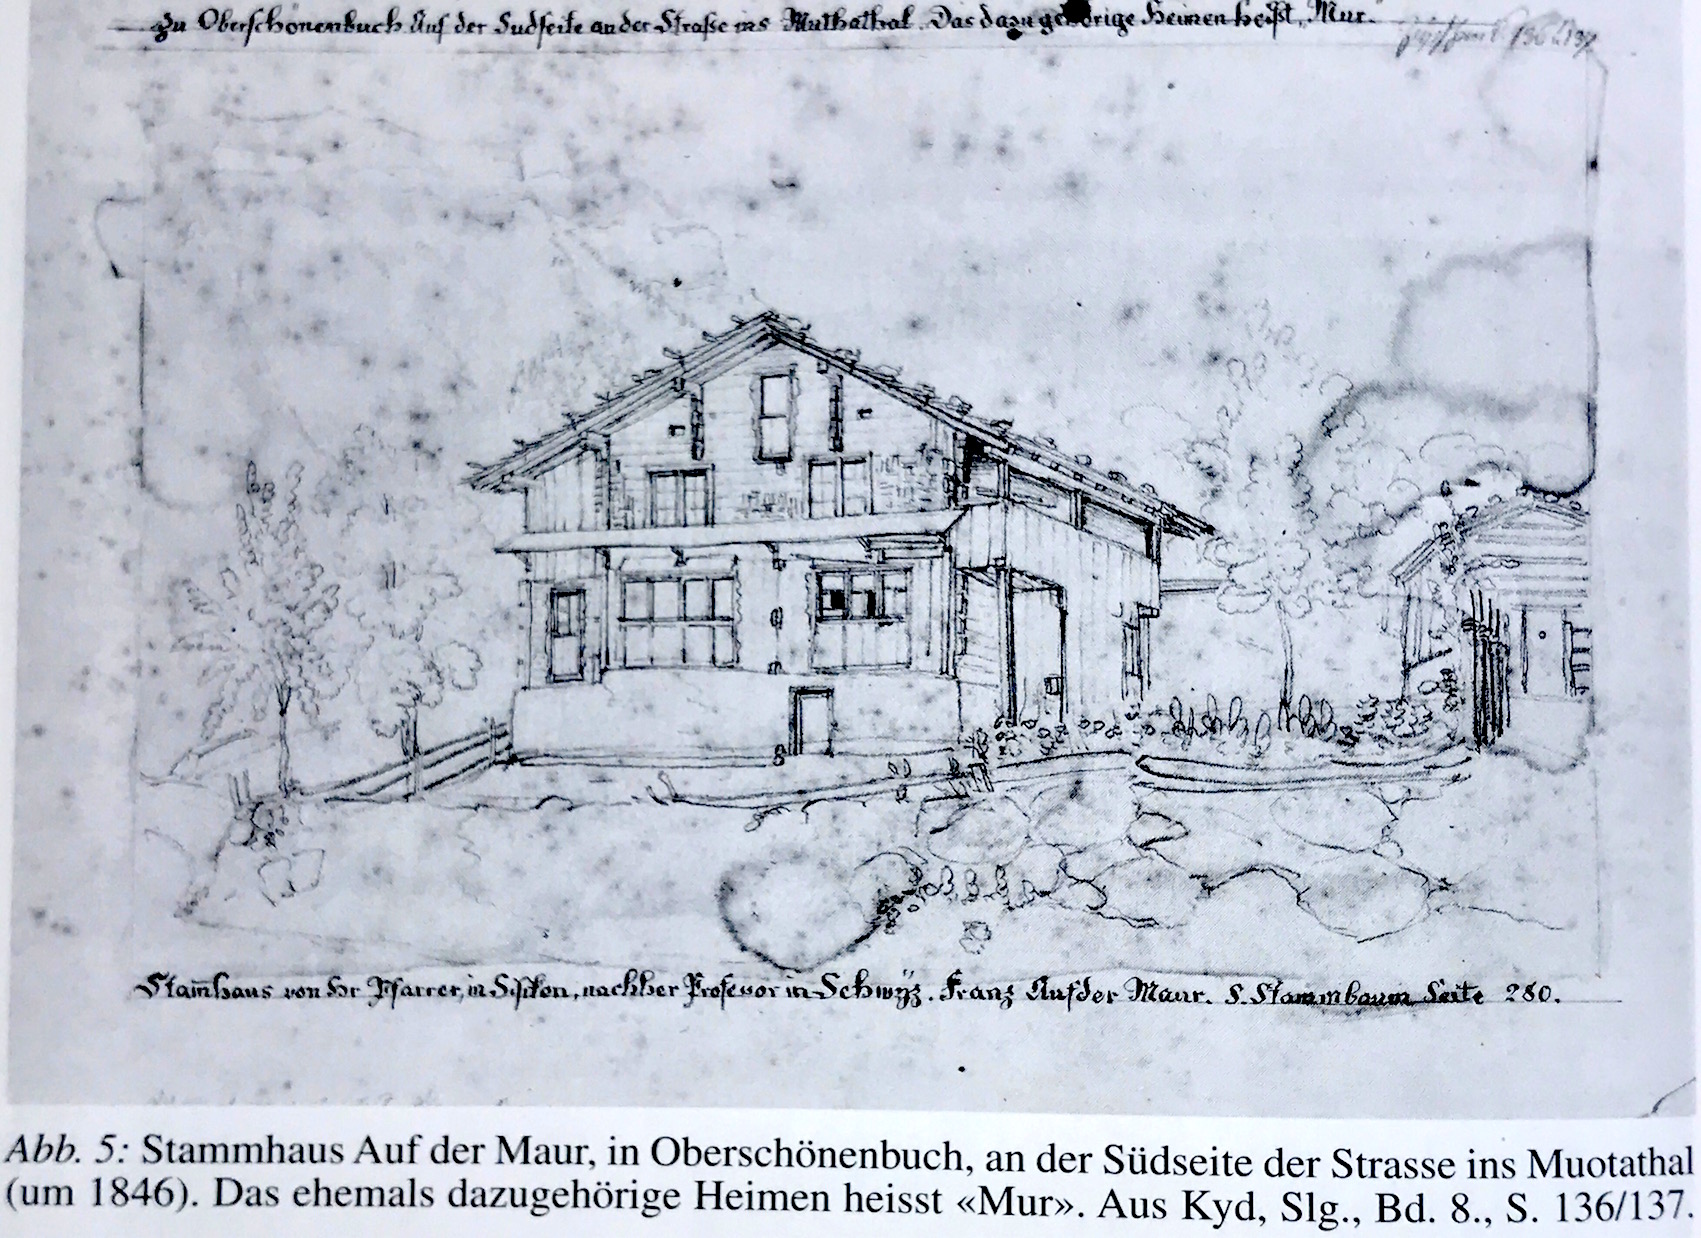 Zu Oberschönenbuch Auf der Südseite an der Straße ins Muthathal. Das dazu gehörige Heimen heißt „Mur."
136/137
Stam̄haus von Hr Pfarrer, in Sisikon, nachher Profesor in Schwÿz. Franz Aufder Maur. S. Stammbaum Seite 280.
Abb. 5: Stammhaus Auf der Maur, in Oberschönenbuch, an der Südseite der Strasse ins Muotathal
(um 1846). Das ehemals dazugehörige Heimen heisst «Mur». Aus Kyd, Slg., Bd. 8., S. 136/137.